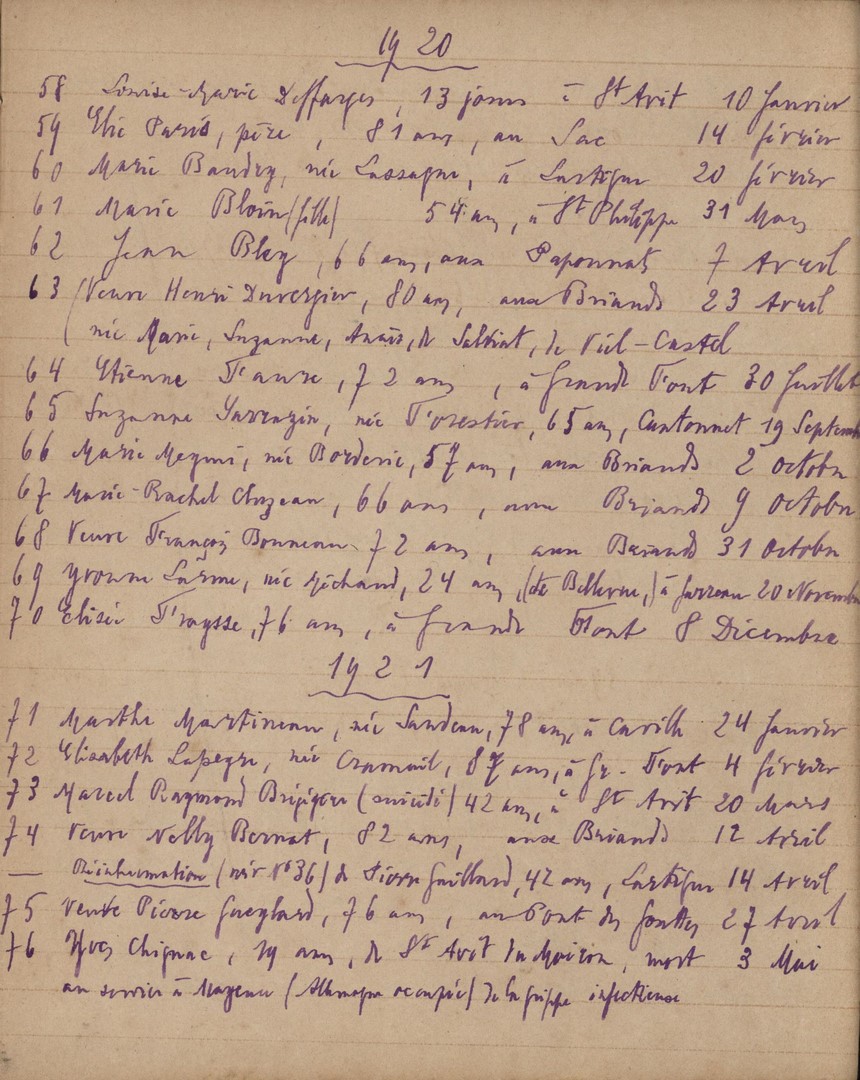 1920
58 Louise-Marie Deffarges, 13 jours à St Avit 10 Janvier
59 Elie Paris, père, 81 ans, au Sac 14 février
60 Marie Baudry, née Lassagne, à Lartigue 20 février
61 Marie Blouin (fille) 54 ans, à St Philippe 31 Mars
62 Jean Bley, 66 ans, aux Paponnats 7 Avril
63 (Veuve Henri Duvergier, 80 ans, aux Briands 23 Avril
(née Marie, Suzanne, Anaïs, de Salviat, de Viel-Castel
64 Etienne Faure, 72 ans, à Grande Font 30 Juillet
65 Suzanne Sarrazin, née Forestier, 65 ans, Cantonnet 19 Septemb
66 Marie Meynie, née Borderie, 57 ans, aux Briands 2 octobre
67 Marie-Rachel Cluzeau, 66 ans, aux Briands 9 octobre
68 Veuve François Bonneau 72 ans, aux Briands 31 octobre
69 Yvonne Larme, née Michaud, 24 ans, (de Bellevue,) à 20 Novembre
70 Elisée Fraysse, 76 ans, à Grande Font 8 Décembre
1921
71 Marthe Martineau, née Sandeau, 78 ans, à 24 Janvier
72 Elisabeth Lapeyre, née 87 ans, à Gr.- Font 4 février
73 Marcel Raymond (suicidé) 42 ans, à St Avit 20 Mars
74 Veuve Nelly Bernat, 82 ans, aux Briands 12 Avril
— Réinhumation (voir No 36) de Pierre Gaillard, 42 ans, Lartigue 14 Avril
75 Veuve Pierre Gueylard, 76 ans, au Pont de 27 Avril
76 Yves Chignac, 19 ans, de St Avit du Moiron, mort 3 Mai
au service à Mayence (Allemagne occupée) de la grippe infectieuse